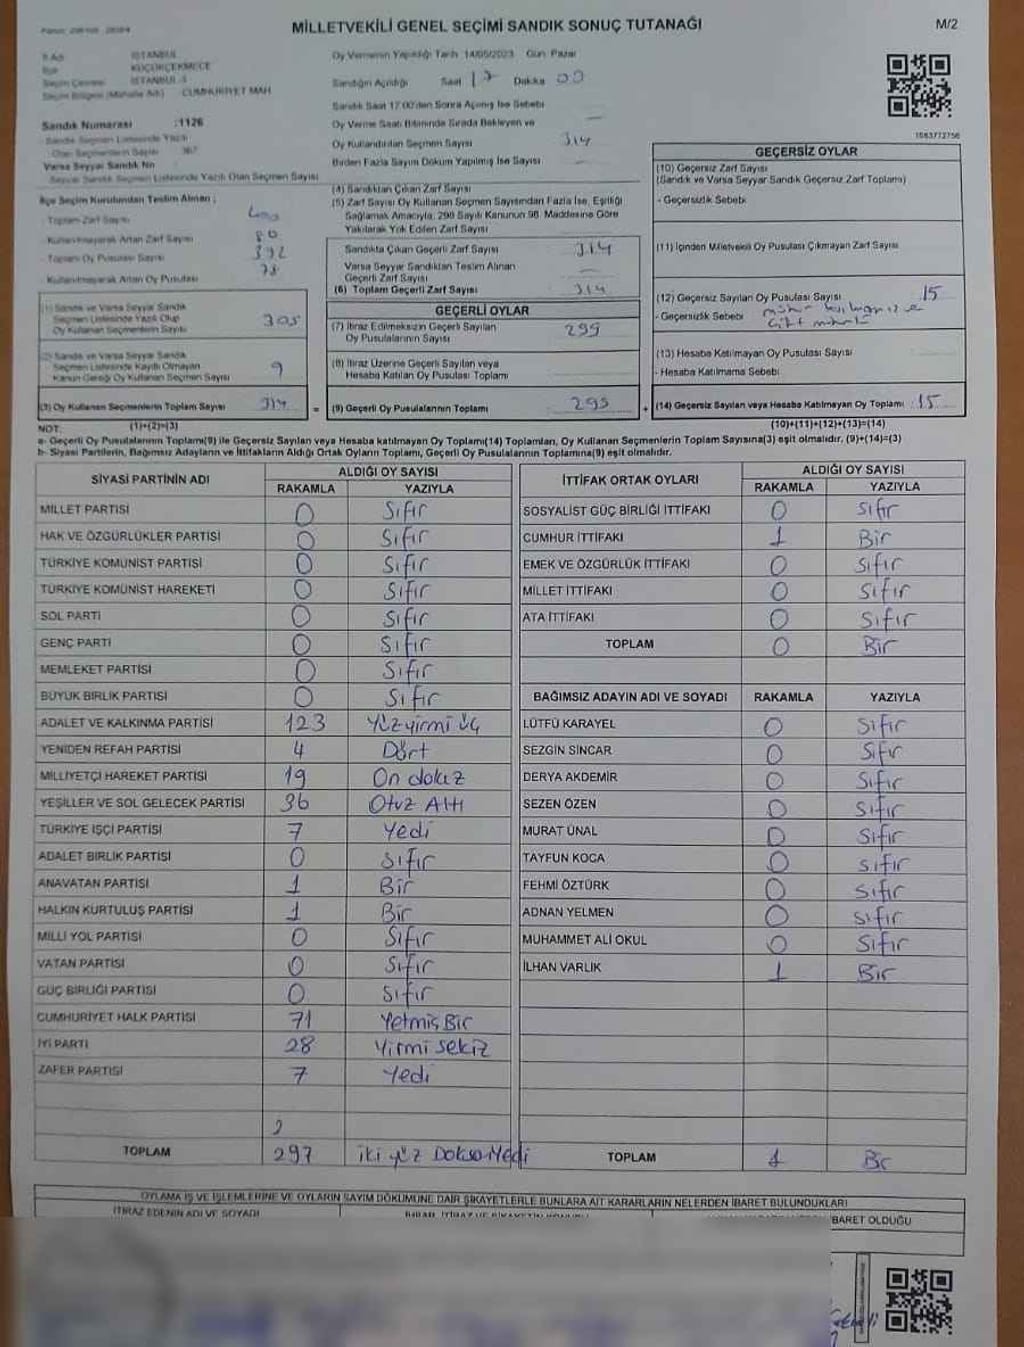 MİLLETVEKİLİ GENEL SEÇİMİ SANDIK SONUÇ TUTANAĞI
M/2
İl Adı İSTANBUL
İlçe KÜÇÜKÇEKMECE
Seçim Çevresi İSTANBUL -3
Seçim Bölgesi (Mahalle Adı) CUMHURİYET MAH
Sandık Numarası :1126
Sandık Seçmen Listesinde Yazılı
Olan Seçmenlerin Sayısı 367
Varsa Seyyar Sandık No
Seyyar Sandık Seçmen Listesinde Yazılı Olan Seçmen Sayısı
İlçe Seçim Kurulundan Teslim Alınan ;
- Toplam Zarf Sayısı
- Kullanılmayarak Artan Zarf Sayısı 80
- Toplam Oy Pusulası Sayısı 392
- Kullanılmayarak Artan Oy Pusulası 78
(1) Sandık ve Varsa Seyyar Sandık
Seçmen Listesinde Yazılı Olup
Oy Kullanan Seçmenlerin Sayısı 305
(2) Sandık ve Varsa Seyyar Sandık
Seçmen Listesinde Kayıtlı Olmayan
Kanun Gereği Oy Kullanan Seçmen Sayısı 9
(3) Oy Kullanan Seçmenlerin Toplam Sayısı 314
Oy Vermenin Yapıldığı Tarih 14/05/2023 Gün Pazar
Sandığın Açıldığı Saat 17 Dakika 00
Sandık Saat 17:00'den Sonra Açılmış İse Sebebi
Oy Verme Saati Bitiminde Sırada Bekleyen ve
Oy Kullandırılan Seçmen Sayısı 314
Birden Fazla Sayım Döküm Yapılmış İse Sayısı
(4) Sandıktan Çıkan Zarf Sayısı
(5) Zarf Sayısı Oy Kullanan Seçmen Sayısından Fazla İse, Eşitliği
Sağlamak Amacıyla, 298 Sayılı Kanunun 98. Maddesine Göre
Yakılarak Yok Edilen Zarf Sayısı
Sandıkta Çıkan Geçerli Zarf Sayısı 314
Varsa Seyyar Sandıktan Teslim Alınan
Geçerli Zarf Sayısı
(6) Toplam Geçerli Zarf Sayısı 314
GEÇERLİ OYLAR
(7) İtiraz Edilmeksizin Geçerli Sayılan
Oy Pusulalarının Sayısı 299
(8) İtiraz Üzerine Geçerli Sayılan veya
Hesaba Katılan Oy Pusulası Toplamı
= (9) Geçerli Oy Pusulalarının Toplamı 299
1083772756
GEÇERSİZ OYLAR
(10) Geçersiz Zarf Sayısı
(Sandık ve Varsa Seyyar Sandık Geçersiz Zarf Toplamı)
- Geçersizlik Sebebi
(11) İçinden Milletvekili Oy Pusulası Çıkmayan Zarf Sayısı
(12) Geçersiz Sayılan Oy Pusulası Sayısı 15
- Geçersizlik Sebebi
(13) Hesaba Katılmayan Oy Pusulası Sayısı
- Hesaba Katılmama Sebebi
+ (14) Geçersiz Sayılan veya Hesaba Katılmayan Oy Toplamı 15
NOT: (1)+(2)=(3) (10)+(11)+(12)+(13)=(14)
a- Geçerli Oy Pusulalarının Toplamı(9) ile Geçersiz Sayılan veya Hesaba katılmayan Oy Toplamı(14) Toplamları, Oy Kullanan Seçmenlerin Toplam Sayısına(3) eşit olmalıdır. (9)+(14)=(3)
b- Siyasi Partilerin, Bağımsız Adayların ve İttifakların Aldığı Ortak Oyların Toplamı, Geçerli Oy Pusulalarının Toplamına(9) eşit olmalıdır.
SİYASİ PARTİNİN ADI ALDIĞI OY SAYISI
RAKAMLA YAZIYLA
MİLLET PARTİSİ 0 Sıfır
HAK VE ÖZGÜRLÜKLER PARTİSİ 0 Sıfır
TÜRKİYE KOMÜNİST PARTİSİ 0 Sıfır
TÜRKİYE KOMÜNİST HAREKETİ 0 Sıfır
SOL PARTİ 0 Sıfır
GENÇ PARTİ 0 Sıfır
MEMLEKET PARTİSİ 0 Sıfır
BÜYÜK BİRLİK PARTİSİ 0 Sıfır
ADALET VE KALKINMA PARTİSİ 123 Yüzyirmi üç
YENİDEN REFAH PARTİSİ 4 Dört
MİLLİYETÇİ HAREKET PARTİSİ 19 On dokuz
YEŞİLLER VE SOL GELECEK PARTİSİ 36 Otuz Altı
TÜRKİYE İŞÇİ PARTİSİ 7 Yedi
ADALET BİRLİK PARTİSİ 0 Sıfır
ANAVATAN PARTİSİ 1 Bir
HALKIN KURTULUŞ PARTİSİ 1 Bir
MİLLİ YOL PARTİSİ 0 Sıfır
VATAN PARTİSİ 0 Sıfır
GÜÇ BİRLİĞİ PARTİSİ 0 Sıfır
CUMHURİYET HALK PARTİSİ 71 Yetmiş Bir
İYİ PARTİ 28 Yirmi sekiz
ZAFER PARTİSİ 7 Yedi
TOPLAM 297 iki yüz Doksan Yedi
İTTİFAK ORTAK OYLARI ALDIĞI OY SAYISI
RAKAMLA YAZIYLA
SOSYALİST GÜÇ BİRLİĞİ İTTİFAKI 0 Sıfır
CUMHUR İTTİFAKI 1 Bir
EMEK VE ÖZGÜRLÜK İTTİFAKI 0 Sıfır
MİLLET İTTİFAKI 0 Sıfır
ATA İTTİFAKI 0 Sıfır
TOPLAM 0 Bir
BAĞIMSIZ ADAYIN ADI VE SOYADI RAKAMLA YAZIYLA
LÜTFÜ KARAYEL 0 Sıfır
SEZGİN SİNCAR 0 Sıfır
DERYA AKDEMİR 0 Sıfır
SEZEN ÖZEN 0 Sıfır
MURAT ÜNAL 0 Sıfır
TAYFUN KOCA 0 Sıfır
FEHMİ ÖZTÜRK 0 Sıfır
ADNAN YELMEN 0 Sıfır
MUHAMMET ALİ OKUL 0 Sıfır
İLHAN VARLIK 1 Bir
TOPLAM 1 Bir
OYLAMA İŞ VE İŞLEMLERİNE VE OYLARIN SAYIM DÖKÜMÜNE DAİR ŞİKAYETLERLE BUNLARA AİT KARARLARIN NELERDEN İBARET BULUNDUKLARI
İTİRAZ EDENİN ADI VE SOYADI
BARET OLDUĞU